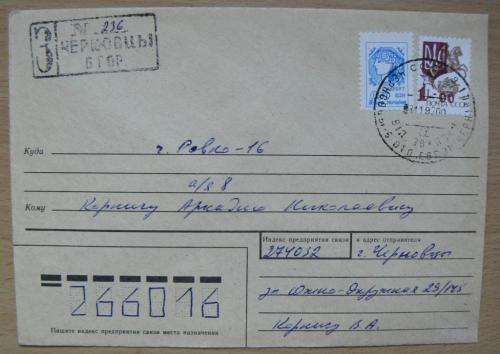 З № 236
ЧЕРНОВЦЫ
6 ГОР
1-00
ПОЧТА СССР
Куда г. Ровно-16
а/я 8
Кому Корнигу Аркадию Николаевичу
Индекс предприятия связи и адрес отправителя
274032 г. Черновцы
ул Южно-Окружная 29/145
Корниг В.А.
266016
Пишите индекс предприятия связи места назначения